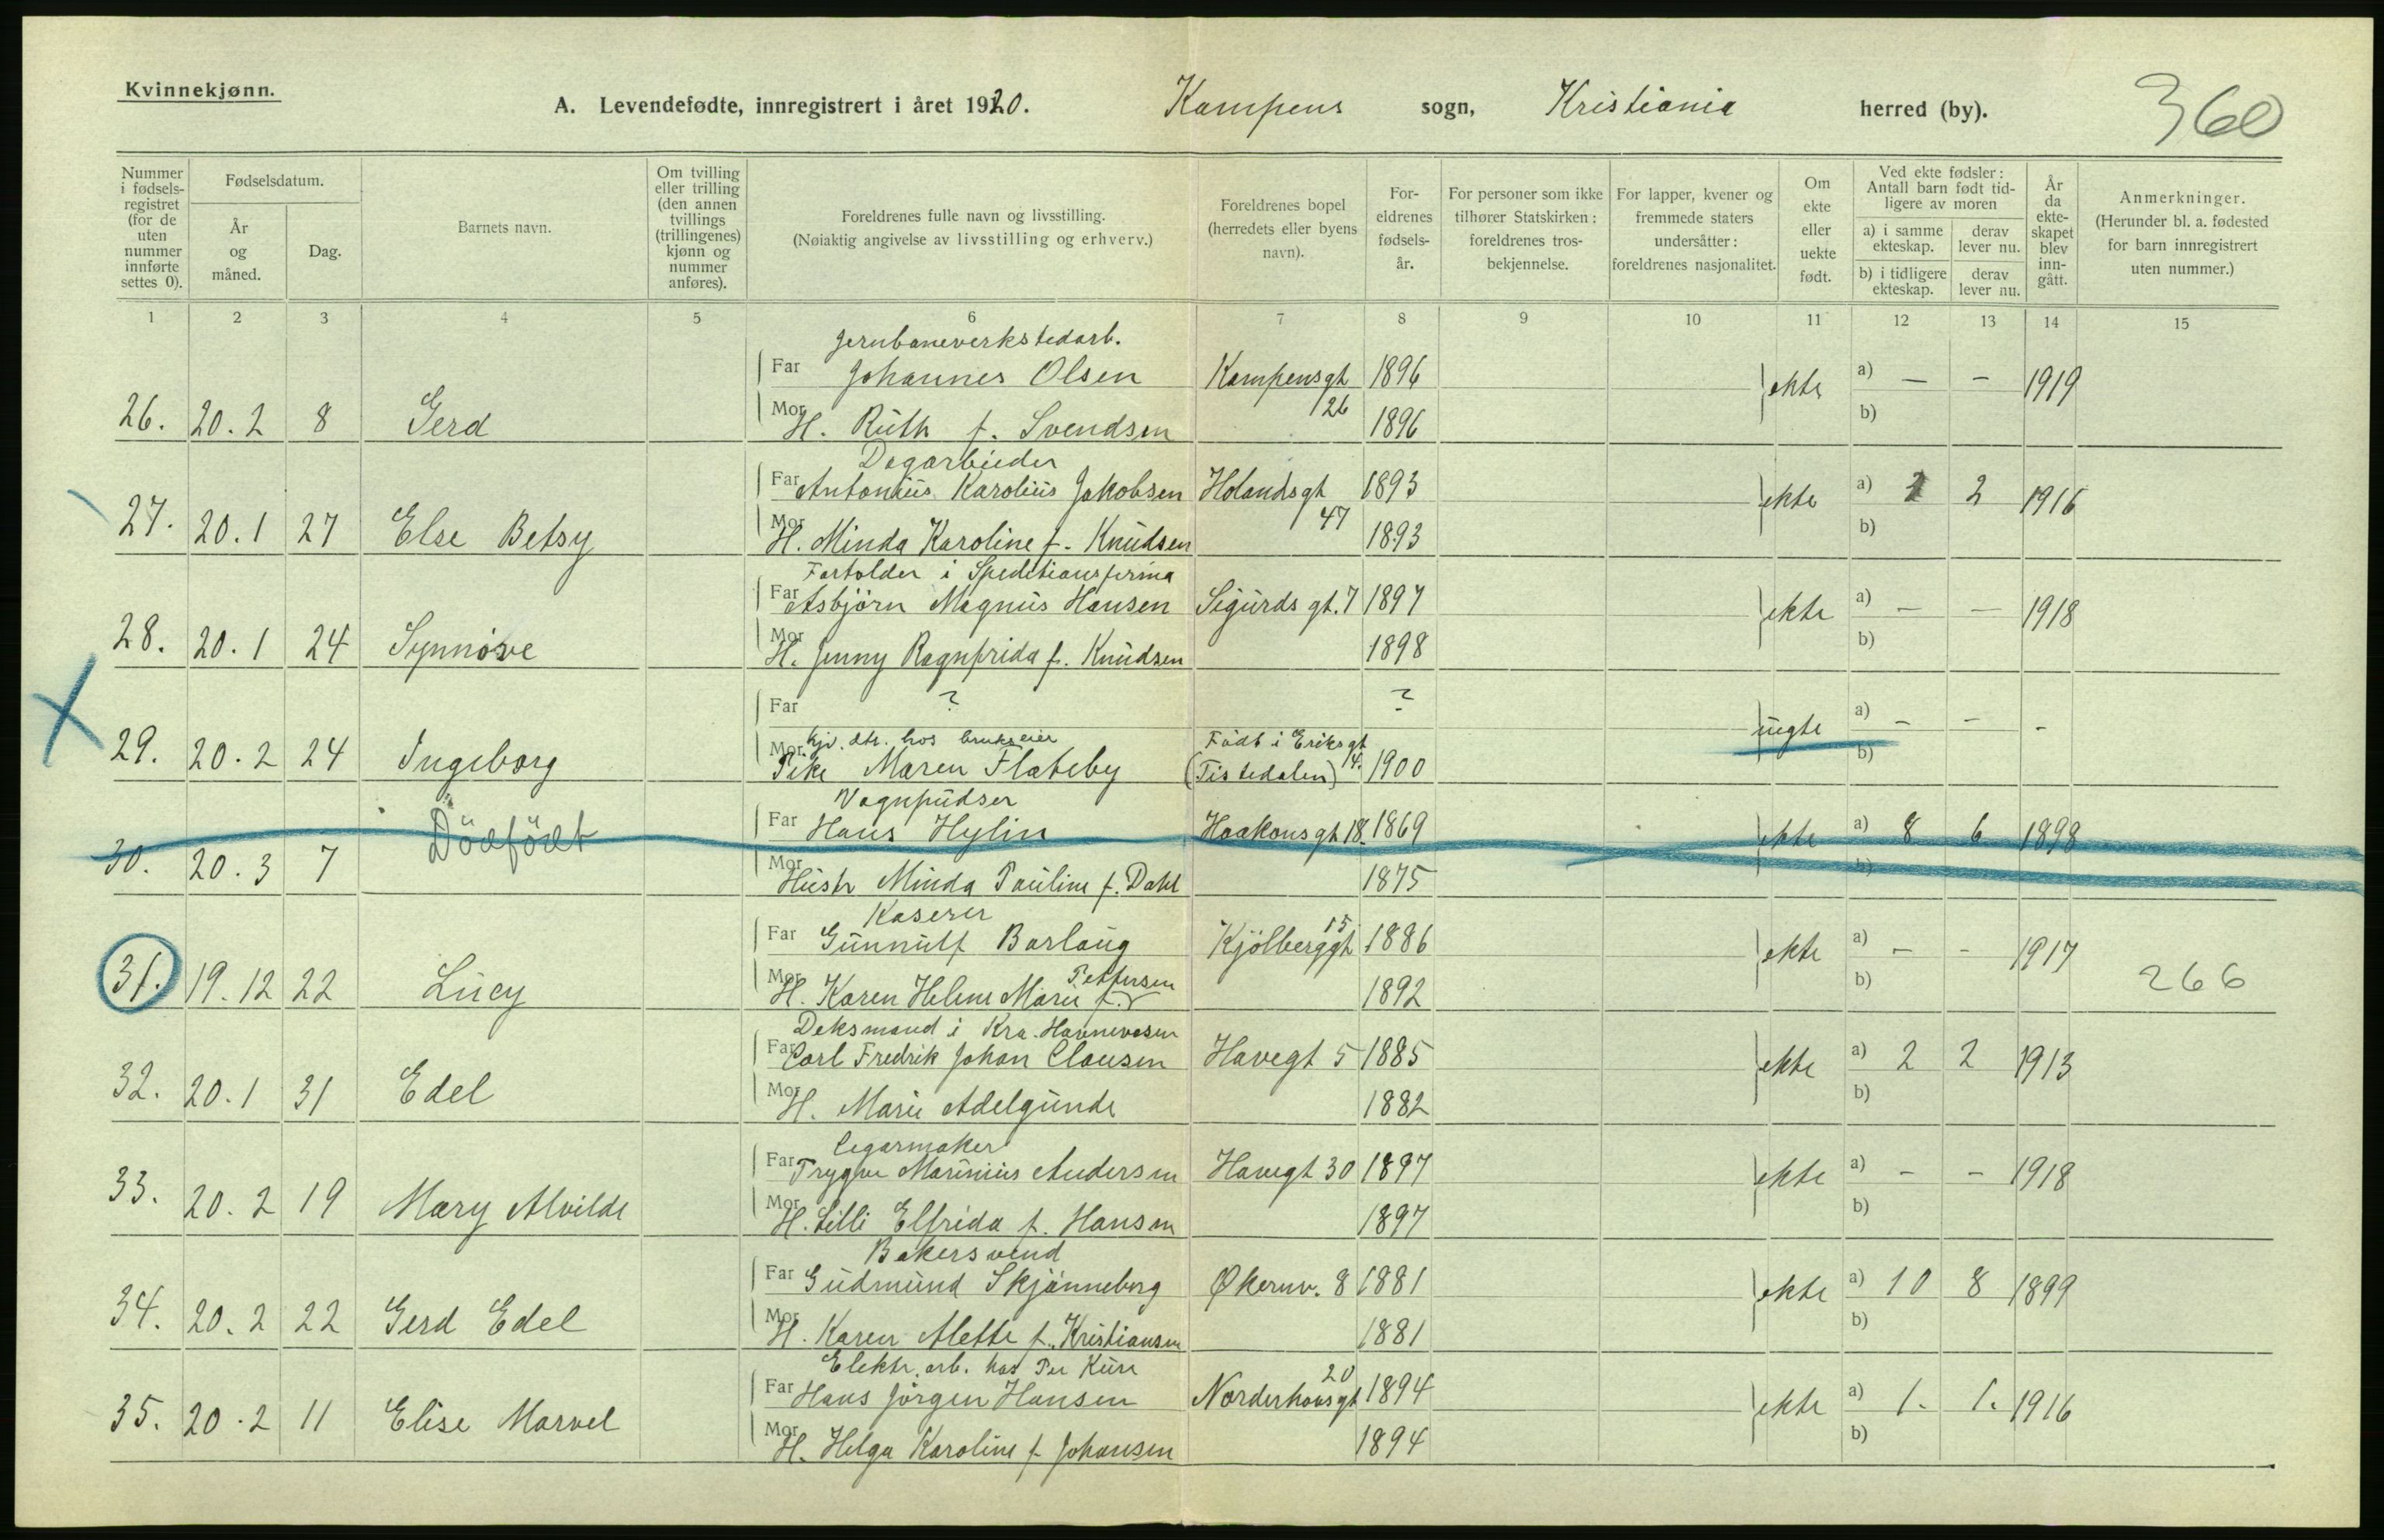 Kvinnekjønn.
A. Levendefødte, innregistrert i året 1920. Kampens sogn, Kristiania herred (by). 360
Nummer i fødsels-registret (for de uten nummer innførte settes 0). Fødselsdatum. År og måned. Dag. Barnets navn. Om tvilling eller trilling (den annen tvillings (trillingenes) kjønn og nummer anføres). Foreldrenes fulle navn og livsstilling. (Nøiaktig angivelse av livsstilling og erhverv.) Foreldrenes bopel (herredets eller byens navn). For-eldrenes fødsels-år. For personer som ikke tilhører Statskirken: foreldrenes tros-bekjennelse. For lapper, kvener og fremmede staters undersåtter: foreldrenes nasjonalitet. Om ekte eller uekte født. Ved ekte fødsler: Antall barn født tid-ligere av moren a) i samme ekteskap. derav lever nu. b) i tidligere ekteskap. derav lever nu. År da ekte-skapet blev inn-gått. Anmerkninger. (Herunder bl. a. fødested for barn innregistrert uten nummer.)
1 2 3 4 5 6 7 8 9 10 11 12 13 14 15
Jernbaneverkstedarb.
Far Johannes Olsen Kampensgt 1896 ekte a) — — 1919
26. 20.2 8 Gerd Mor H. Ruth f. Svendsen 26 1896 b)
Dagarbeider
Far Antonius Karolius Jakobsen Holandsgt 1893 ekte a) 2 2 1916
27. 20.1 27 Else Betsy Mor H. Minda Karoline f. Knudsen 47 1893 b)
Fortolder i Speditionsfirma
Far Asbjörn Magnus Hansen Sigurds gt. 7 1897 ekte a) — — 1918
28. 20.1 24 Synnöve Mor H. Jenny Ragnfrida f. Knudsen 1898 b)
Far ? ? uegte a) – – -
kjv. dtr. hos brukseier Födt i Eriksgt
29. 20.2 24 Ingeborg Mor Pike Maren Flateby (Tistedalen) 14. 1900 b)
Vognpudser
Far Hans Hylin Haakonsgt 18. 1869 ekte a) 8 6 1898
30. 20.3 7 Dödfödt Mor Hustr Minda Pauline f. Dahl 1875 b)
Kaserer 15
Far Gunnulf Borlaug Kjölberggt 1886 ekte a) – - 1917
31. 19.12 22 Lucy Mor H. Karen Helene Marie f. Pettersen 1892 b) 266
Deksmand i Kra. Havnevesen
Far Carl Fredrik Johan Clausen Havegt 5 1885 ekte a) 2 2 1913
32. 20.1 31 Edel Mor H. Marie Adelgunde 1882 b)
Cigarmaker
Far Trygve Marinius Andersen Havegt 30 1897 ekte a) – – 1918
33. 20.2 19 Mary Alvilde Mor H. Lilli Elfrida f. Hansen 1897 b)
Bakersvend
Far Gudmund Skjönneberg Økernv. 8 1881 ekte a) 10 8 1899
34. 20.2 22 Gerd Edel Mor H. Karen Alette f. Kristiansen 1881 b)
Elektr. arb. hos Per Kure 20
Far Hans Jörgen Hansen Norderhovsgt 1894 ekte a) 1. 1. 1916
35. 20.2 11 Elise Marvel Mor H. Helga Karoline f Johansen 1894 b)